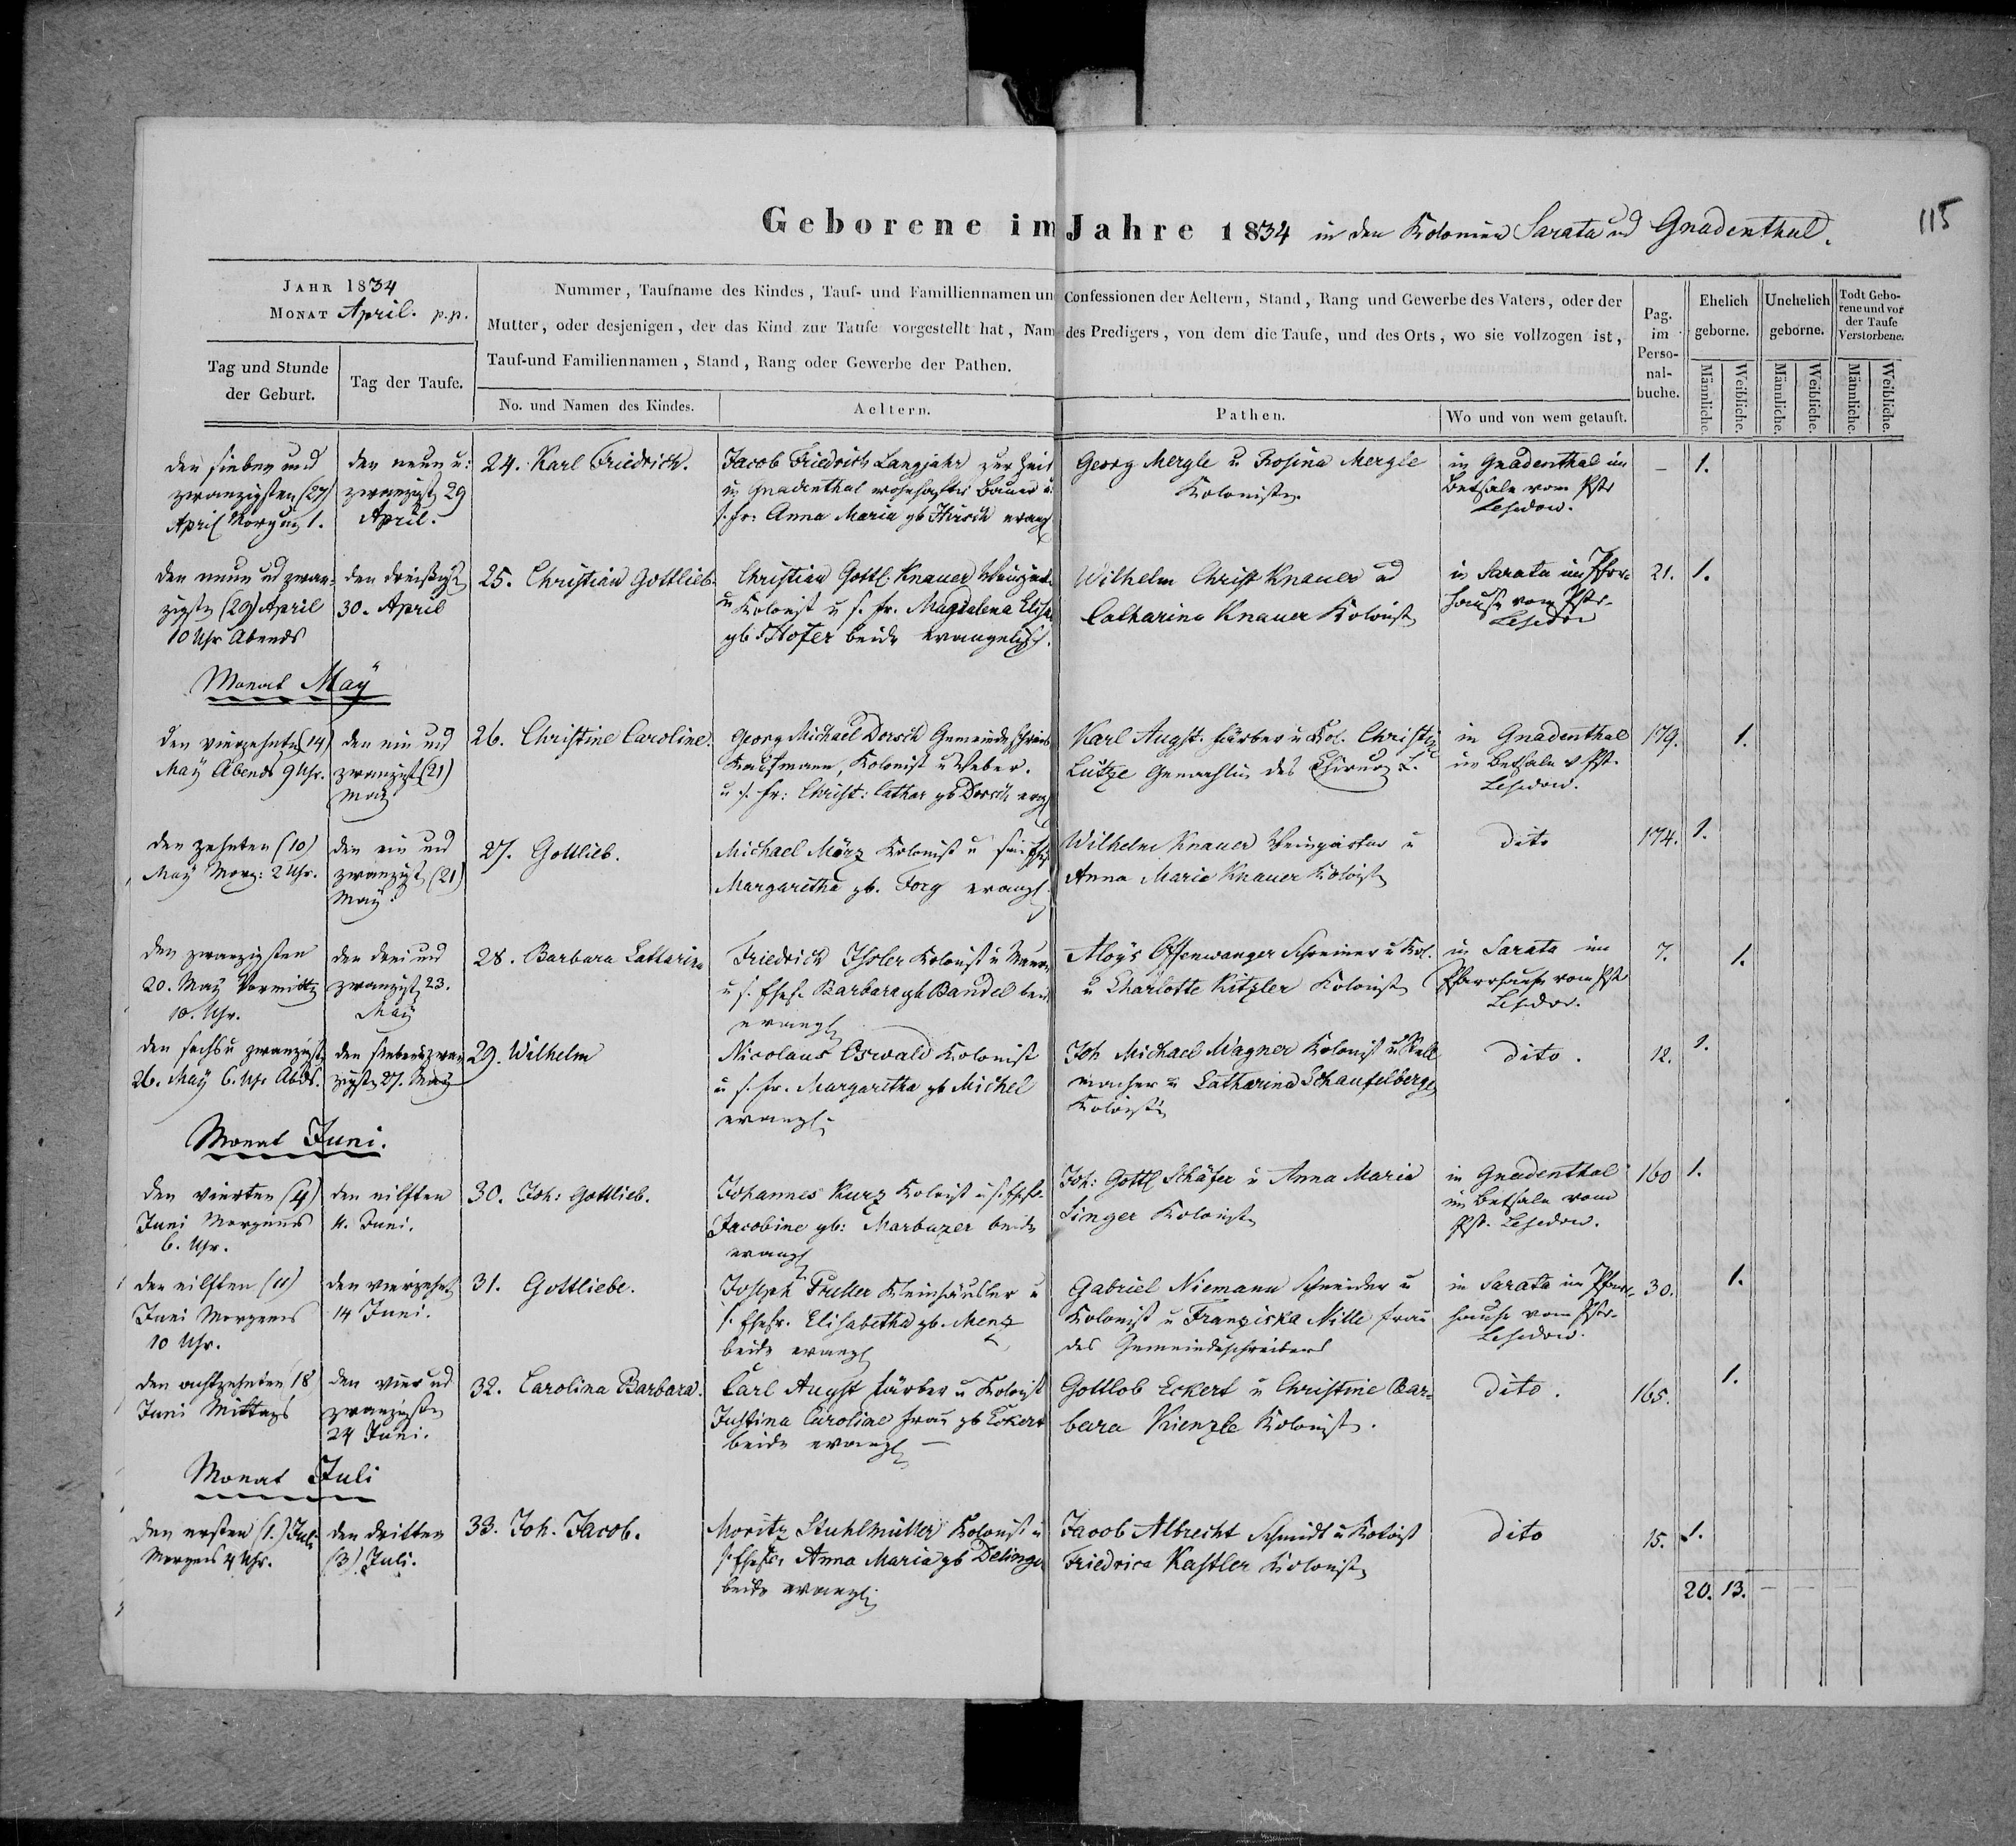 115
Geborene im Jahre 1834 in den Kolonien Sarata und Gnadenthal.
JAHR 1834
MONAT April. p.p.
Tag und Stunde der Geburt.
Tag der Taufe.
Nummer, Taufname des Kindes, Tauf- und Familliennamen un Confessionen der Aeltern, Stand, Rang und Gewerbe des Vaters, oder der
Mutter, oder desjenigen, der das Kind zur Taufe vorgestellt hat, Nam des Predigers, von dem die Taufe, und des Orts, wo sie vollzogen ist,
Tauf-und Familiennamen, Stand, Rang oder Gewerbe der Pathen.
No. und Namen des Kindes.
Aeltern.
Pathen.
Wo und von wem getauft.
Pag. im Perso-nal-buche.
Ehelich geborne.
Unehelich geborne.
Todt Gebo-rene und vor der Taufe Verstorbene.
Männliche. Weibliche. Männliche. Weibliche. Männliche. Weibliche.
den sieben und
zwanzigsten (27)
April Morgens 1.
den neun u:
zwanzigst 29
April.
24. Karl Friedrich.
Jacob Friedrich Langjahr zur Zeit
in Gnadenthal wohnhafter Bauer u.
s. Fr: Anna Maria gb Hirsch evangl
Georg Mergle u Rosina Mergle
Kolonisten
in Gnadenthal im
Betsale vom Pstr
– 1.
den neun und zwan-
zigsten (29) April
10 Uhr Abends
den dreißigst
30. April
25. Christian Gottlieb.
Christian Gottl. Knauer
u Kolonist u s. Fr. Magdalena Elisa
gb Hofer beide evangelisch.
Wilhelm Christ Knauer ud
Catharina Knauer Kolonist
in Sarata im Pfarr-
hause vom Pstr.
21. 1.
Monat May
den vierzehnten (14)
May Abends 9 Uhr.
den ein und
zwanzigst (21)
May
26. Christine Caroline.
Georg Michael Dorsch
Kaufmann, Kolonist u Weber.
u s. Fr: Christ: Cathar gb Dorsch evgl
Karl Augst. Färber u Kol. Christine
Lutze Gemahlin des Chirurg L.
in Gnadenthal
im Betsale v Pst.
179. 1.
den zehnten (10)
May Morg: 2 Uhr.
den ein und
zwanzigst (21)
May.
27. Gottlieb.
Michael März Kolonist u
Margaretha gb. Forg evangl.
Wilhelm Knauer Weingärtner u
Anna Maria Knauer Kolonist
dito
174. 1.
den zwanzigsten
20. May Vormittg
10. Uhr.
den drei und
zwanzigst 23.
May
28. Barbara Catharina
Friedrich Isler Kolonist u
u s. Ehefr. Barbara gb Bandel beide
evangl
Aloys Offenwanger Schreiner u Kol.
u Charlotte Kitzler Kolonist
in Sarata im
Pfarrhause vom Pst
7. 1.
den sechs u zwanzigst
26. May 6. Uhr Abds.
den sieben u zwan
zigst 27. May
29. Wilhelm
Nicolaus Oswald Kolonist
u s. Fr. Margaretha gb Michel
evangl.
Joh Michael Wagner Kolonist u
macher u Catharina Schaufelberger
Kolonist
dito.
12. 1.
Monat Juni.
den vierten (4)
Juni Morgens
6. Uhr.
den eilften
11. Juni.
30. Joh: Gottlieb.
Johannes Kurz Kolonist u s. Ehefr.
Jacobine gb: Marbazer beide
evangl
Joh: Gottl Schäfer u Anna Maria
Singer Kolonist
in Gnadenthal
im Betsale vom
Pst.
160 1.
den eilften (11)
Juni Morgens
10 Uhr.
den vierzehnt
14 Juni.
31. Gottliebe.
Joseph Kleinhäusler u
s. Ehefr. Elisabetha gb. Menz
beide evangl
Gabriel Niemann Schneider u
Kolonist u Franziska Nille Frau
des Gemeindeschreibers
in Sarata im Pfarr-
hause vom Pstr.
30. 1.
den achtzehnten 18
Juni Mittags
den vier ud
zwanzigsten
24 Juni.
32. Carolina Barbara.
Carl Augst Färber u Kolonist
Justina Caroline Frau gb Eckert
beide evangl –
Gottlob Eckert u Christine Bar-
bara Kienzle Kolonist.
dito.
165. 1.
Monat Juli
den ersten (1.) Juli
Morgens 4 Uhr.
den dritten
(3) Juli.
33. Joh. Jacob.
Moritz Stuhlmüller Kolonist u
s. Ehefr. Anna Maria gb Delinger
beide evangl
Jacob Albrecht Schmidt u Kolonist
Friedrica Kastler Kolonist
dito
15. 1.
20. 13. – – –